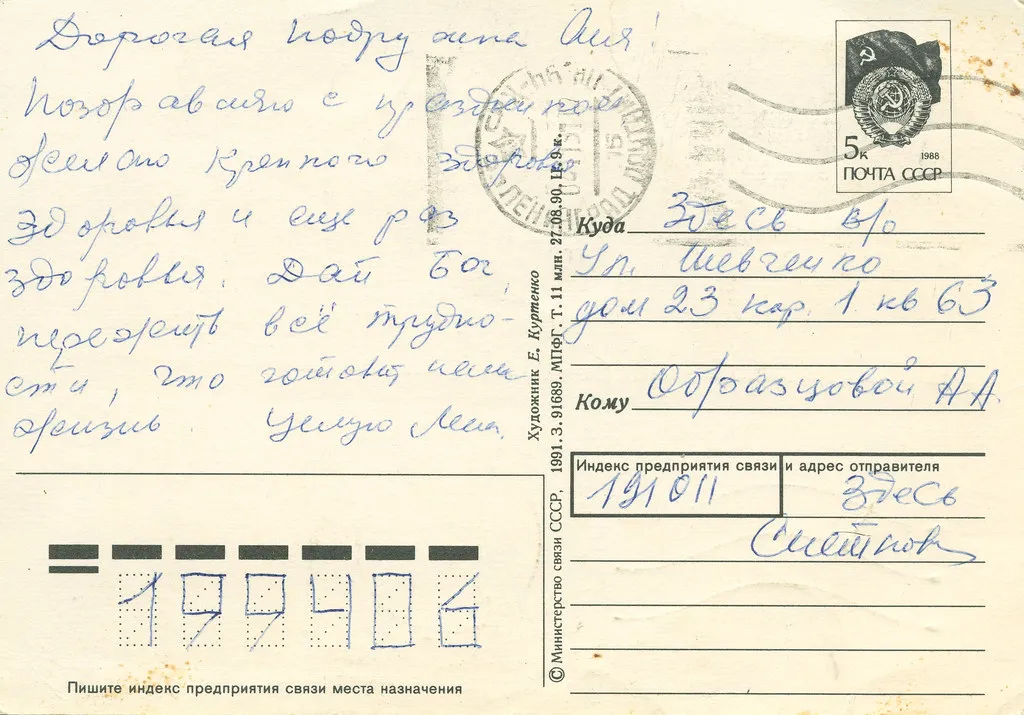 Дорогая подружка Аля!
Поздравляю с праздником
Желаю крепкого здоровья
Здоровья и еще раз
здоровья. Дай Бог,
пережить всё трудно-
сти, что готовит нам
жизнь. Целую Лена.
5к 1988
ПОЧТА СССР
ЛЕНИНГРАД
15
Куда Здесь в/о
Ул. Шевченко
дом 23 кор. 1 кв 63
Кому Образцовой А А.
Индекс предприятия связи и адрес отправителя
191011 Здесь
Художник Е. Куртенко
© Министерство связи СССР, 1991. З. 91689. МПФГ. Т. 11 млн. 27.08.90. Ц. 9 к.
199406
Пишите индекс предприятия связи места назначения